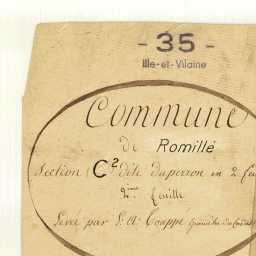 - 35 -
Ille-et-Vilaine
Commune
de Romillé
Section C² dite Duperron en 2 feu
2ème feuille
Levé par